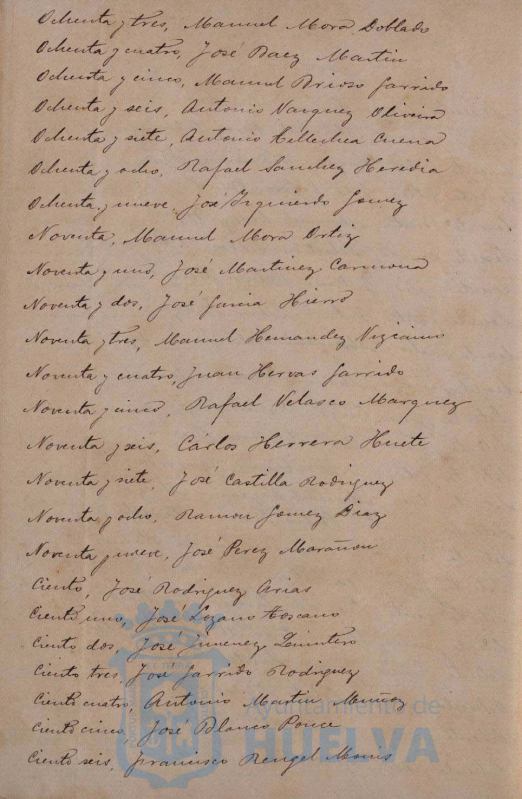 Ochenta y tres, Manuel Mora Doblado
Ochenta y cuatro, José Baez Martin
Ochenta y cinco, Manuel Brioso Garrido
Ochenta y seis, Antonio Vazquez Oliveira
Ochenta y siete, Antonio Hellechea Cuena
Ochenta y ocho, Rafael Sanchez Heredia
Ochenta y nueve, José Izquierdo Gomez
Noventa, Manuel Mora Ortiz
Noventa y uno, José Martinez Carmona
Noventa y dos, José Garcia Hierro
Noventa y tres, Manuel Hernandez Vizcaino
Noventa y cuatro, Juan Hervas Garrido
Noventa y cinco, Rafael Velasco Marquez
Noventa y seis, Cárlos Herrera Huete
Noventa y siete, José Castilla Rodriguez
Noventa y ocho, Ramon Gomez Diaz
Noventa y nueve, José Perez Marañon
Ciento, José Rodriguez Arias
Ciento uno, José Lozano Toscano
Ciento dos, José Jimenez Quintero
Ciento tres, José Garrido Rodriguez
Ciento cuatro, Antonio Martin Muñoz
Ciento cinco, José Blanco Ponce
Ciento seis, Francisco Rengel Monis
Ayuntamiento de
HUELVA